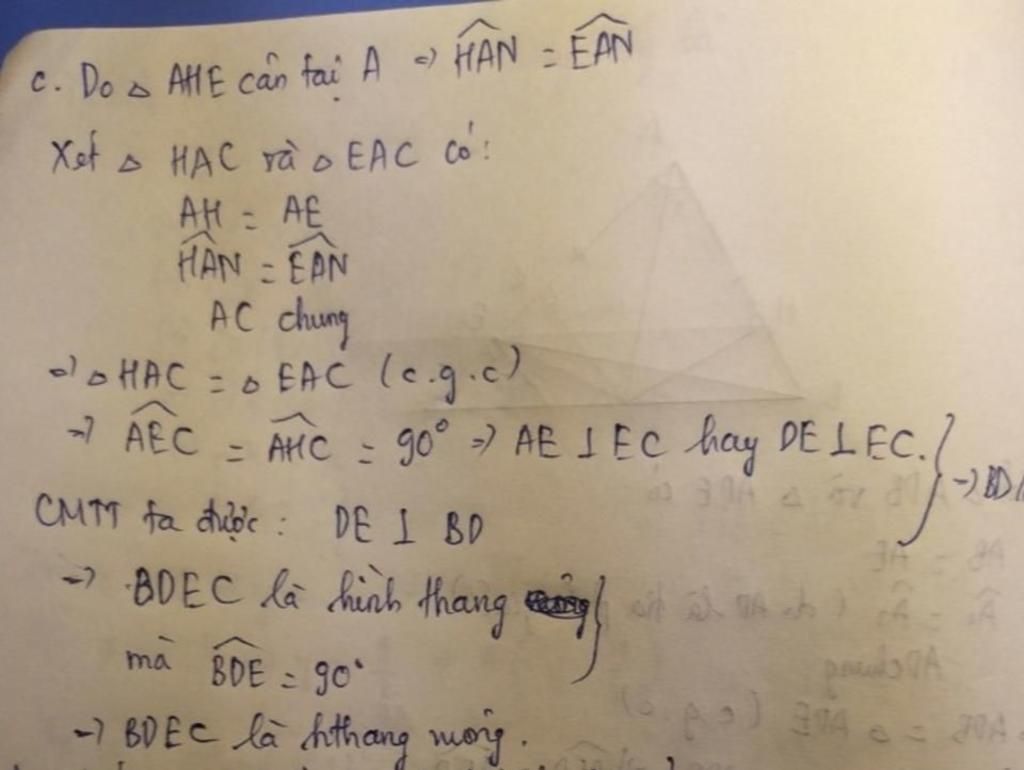 c. Do △ AHE cân tại A => \widehat{HAN} = \widehat{EAN}
Xét △ HAC và △ EAC có:
AH = AE
\widehat{HAN} = \widehat{EAN}
AC chung
=> △ HAC = △ EAC (c.g.c)
=> \widehat{AEC} = \widehat{AHC} = 90° => AE ⊥ EC hay DE ⊥ EC.
=> BD/
CMTT ta được: DE ⊥ BD
=> BDEC là hình thang
mà \widehat{BDE} = 90°
=> BDEC là hthang vuông.